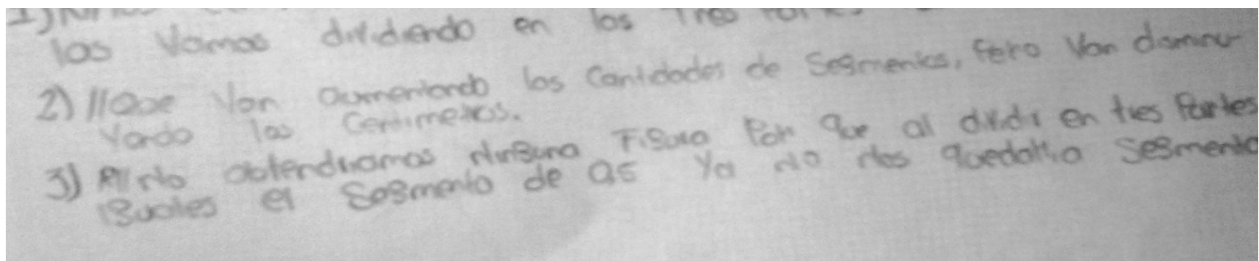 las vamos dividiendo en los tres
2) llQue van aumentando los Cantidades de Segmentos, Pero Van disminu-
yendo los Centimetros.
3) No obtendriamos Ninguna Figura Por que al dividir en tres Partes
iguales el Segmento de as Ya No Nos quedaria Segmento